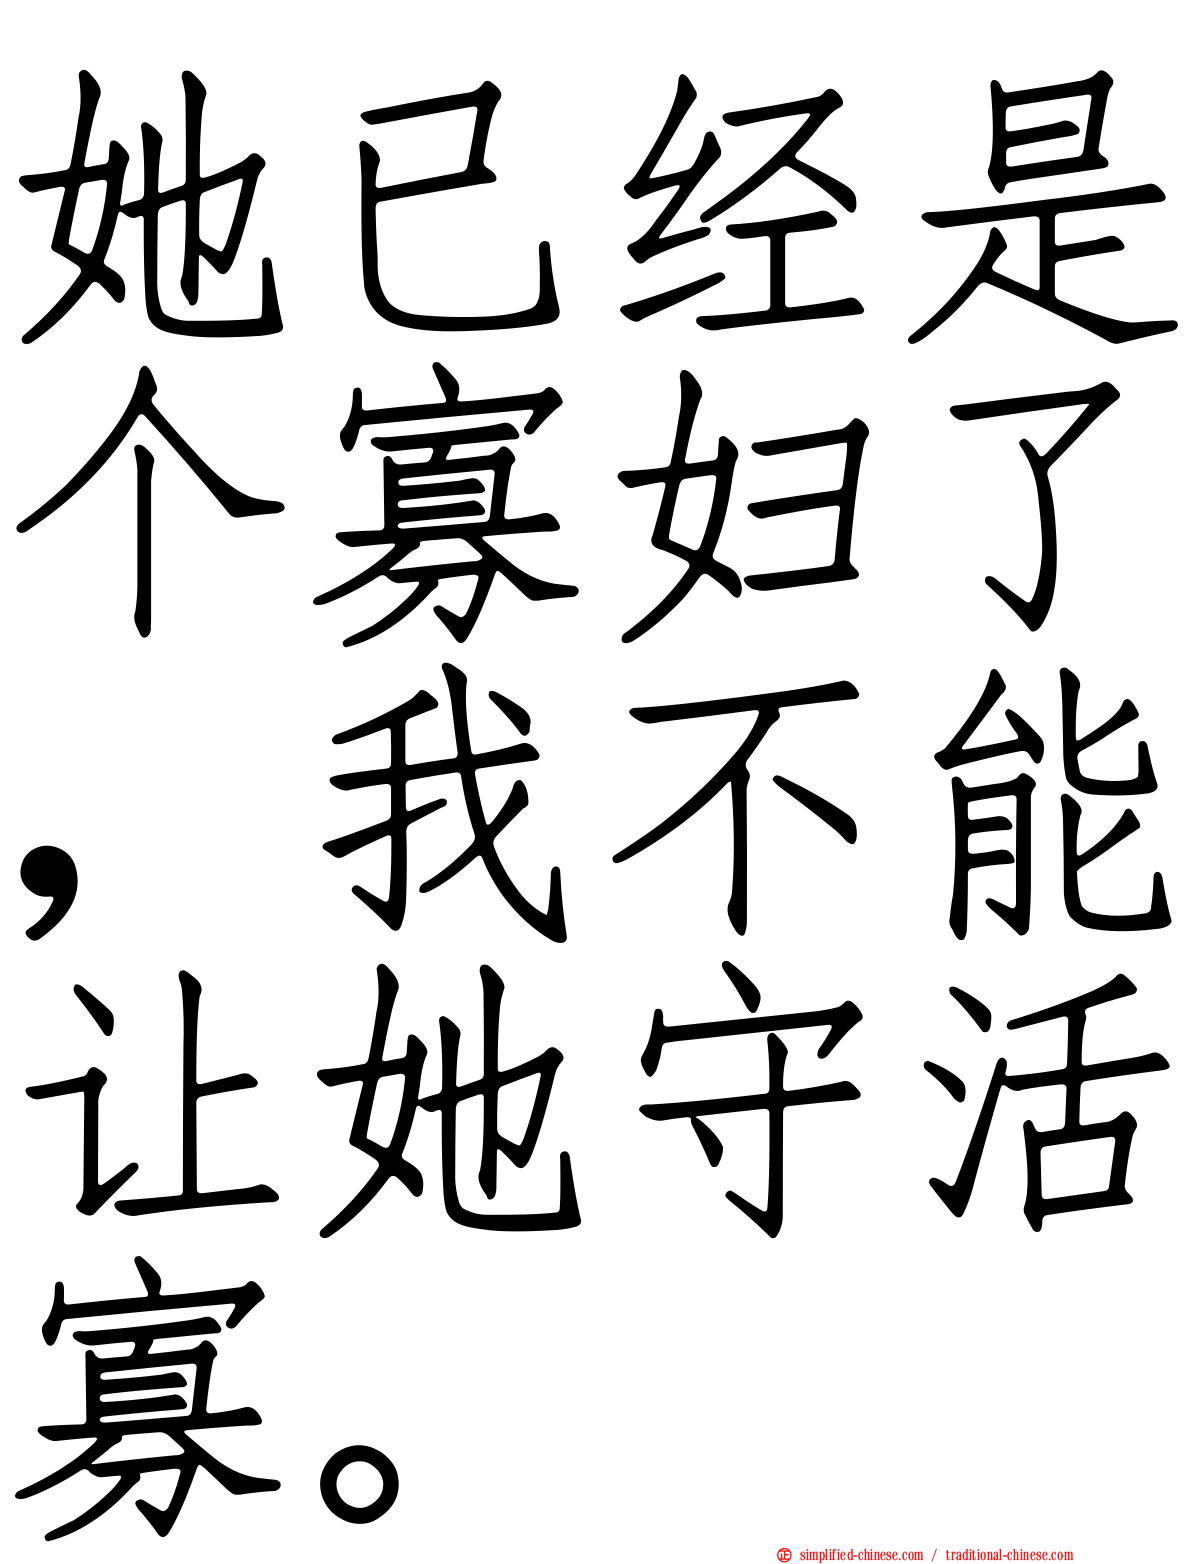 她已经是
个寡妇了
，我不能
让她守活
寡。
㊣ simplified-chinese.com / traditional-chinese.com